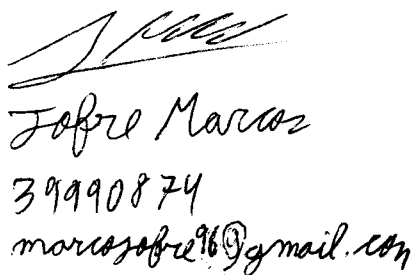 Jofre Marcos
39990874
marcosjofre96@gmail.com